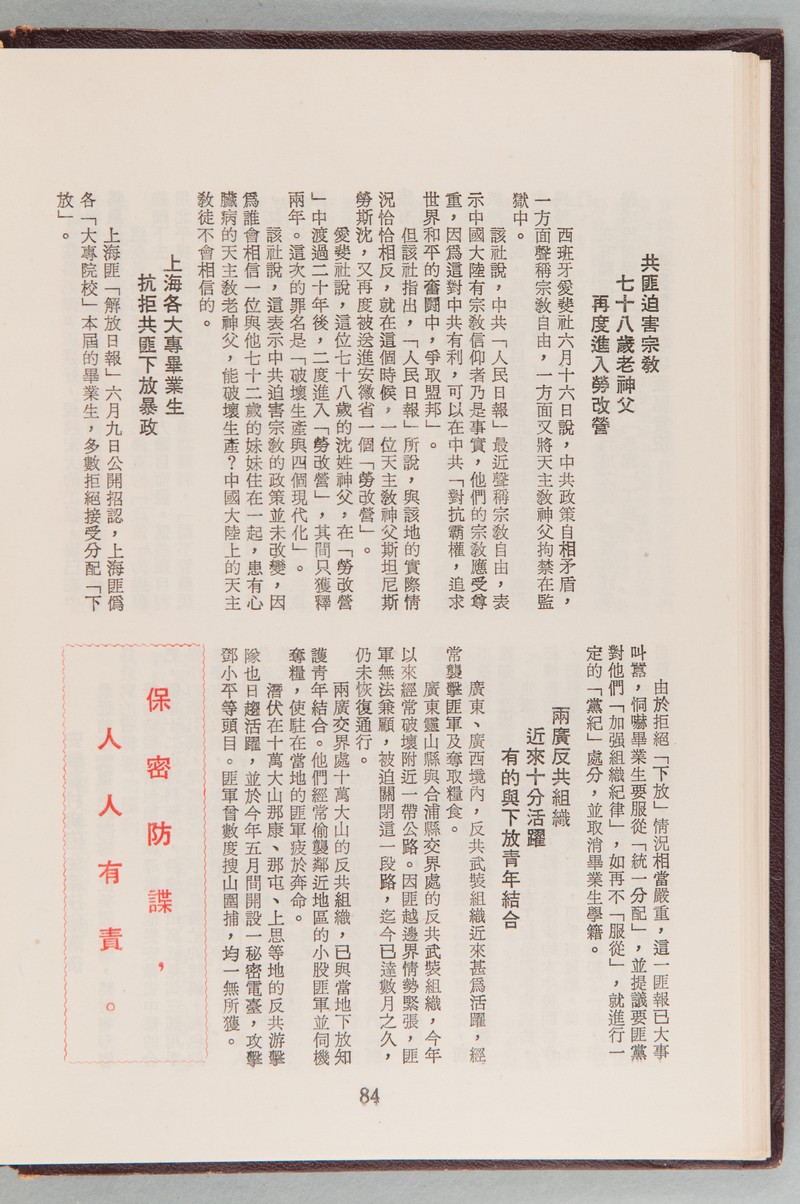 共匪迫害宗教
七十八歲老神父
再度進入勞改營
西班牙愛斐社六月十六日說，中共政策自相矛盾，
一方面聲稱宗教自由，一方面又將天主教神父拘禁在監
獄中。
該社說，中共「人民日報」最近聲稱宗教自由，表
示中國大陸有宗教信仰者乃是事實，他們的宗教應受尊
重，因爲這對中共有利，可以在中共「對抗霸權，追求
世界和平的奮鬪中，爭取盟邦」。
但該社指出，「人民日報」所說，與該地的實際情
況恰恰相反，就在這個時候，一位天主教神父斯坦尼斯
勞斯沈，又再度被送進安徽省一個「勞改營」。
愛斐社說，這位七十八歲的沈姓神父，在「勞改營
」中渡過二十年後，二度進入「勞改營」，其間只獲釋
兩年。這次的罪名是「破壞生產與四個現代化」。
該社說，這表示中共迫害宗教的政策並未改變，因
爲誰會相信一位與他七十二歲的妹妹住在一起，患有心
臟病的天主教老神父，能破壞生產？中國大陸上的天主
教徒不會相信的。
上海各大專畢業生
抗拒共匪下放暴政
上海匪「解放日報」六月九日公開招認，上海匪僞
各「大專院校」本屆的畢業生，多數拒絕接受分配「下
放」。
由於拒絕「下放」情況相當嚴重，這一匪報已大事
叫囂，恫嚇畢業生要服從「統一分配」，並提議要匪黨
對他們「加强組織紀律」，如再不「服從」，就進行一
定的「黨紀」處分，並取消畢業生學籍。
兩廣反共組織
近來十分活躍
有的與下放青年結合
廣東、廣西境內，反共武裝組織近來甚爲活躍，經
常襲擊匪軍及奪取糧食。
廣東靈山縣與合浦縣交界處的反共武裝組織，今年
以來經常破壞附近一帶公路。因匪越邊界情勢緊張，匪
軍無法兼顧，被迫關閉這一段路，迄今已達數月之久，
仍未恢復通行。
兩廣交界處十萬大山的反共組織，已與當地下放知
護青年結合。他們經常偷襲鄰近地區的小股匪軍並伺機
奪糧，使駐在當地的匪軍疲於奔命。
潛伏在十萬大山那康、那屯、上思等地的反共游擊
隊也日趨活躍，並於今年五月間開設一秘密電臺，攻擊
鄧小平等頭目。匪軍曾數度搜山圍捕，均一無所獲。
保密防諜，
人人有責。
84